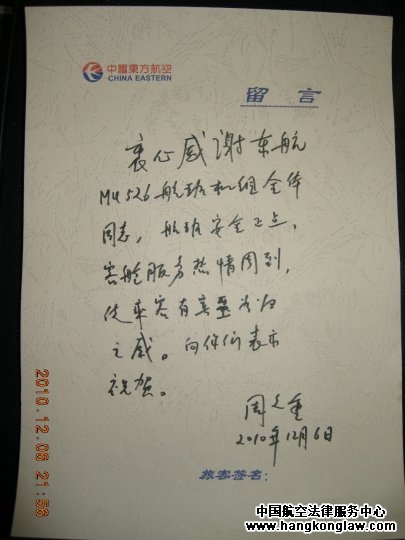 中國東方航空
CHINA EASTERN
留言
衷心感谢东航
MU526航班机组全体
同志，航班安全正点，
客舱服务热情周到，
使乘客有宾至如归
之感。向你们表示
祝贺。
2010年12月6日
旅客签名：
2010.12.06 21:56
中国航空法律服务中心
www.hangkonglaw.com